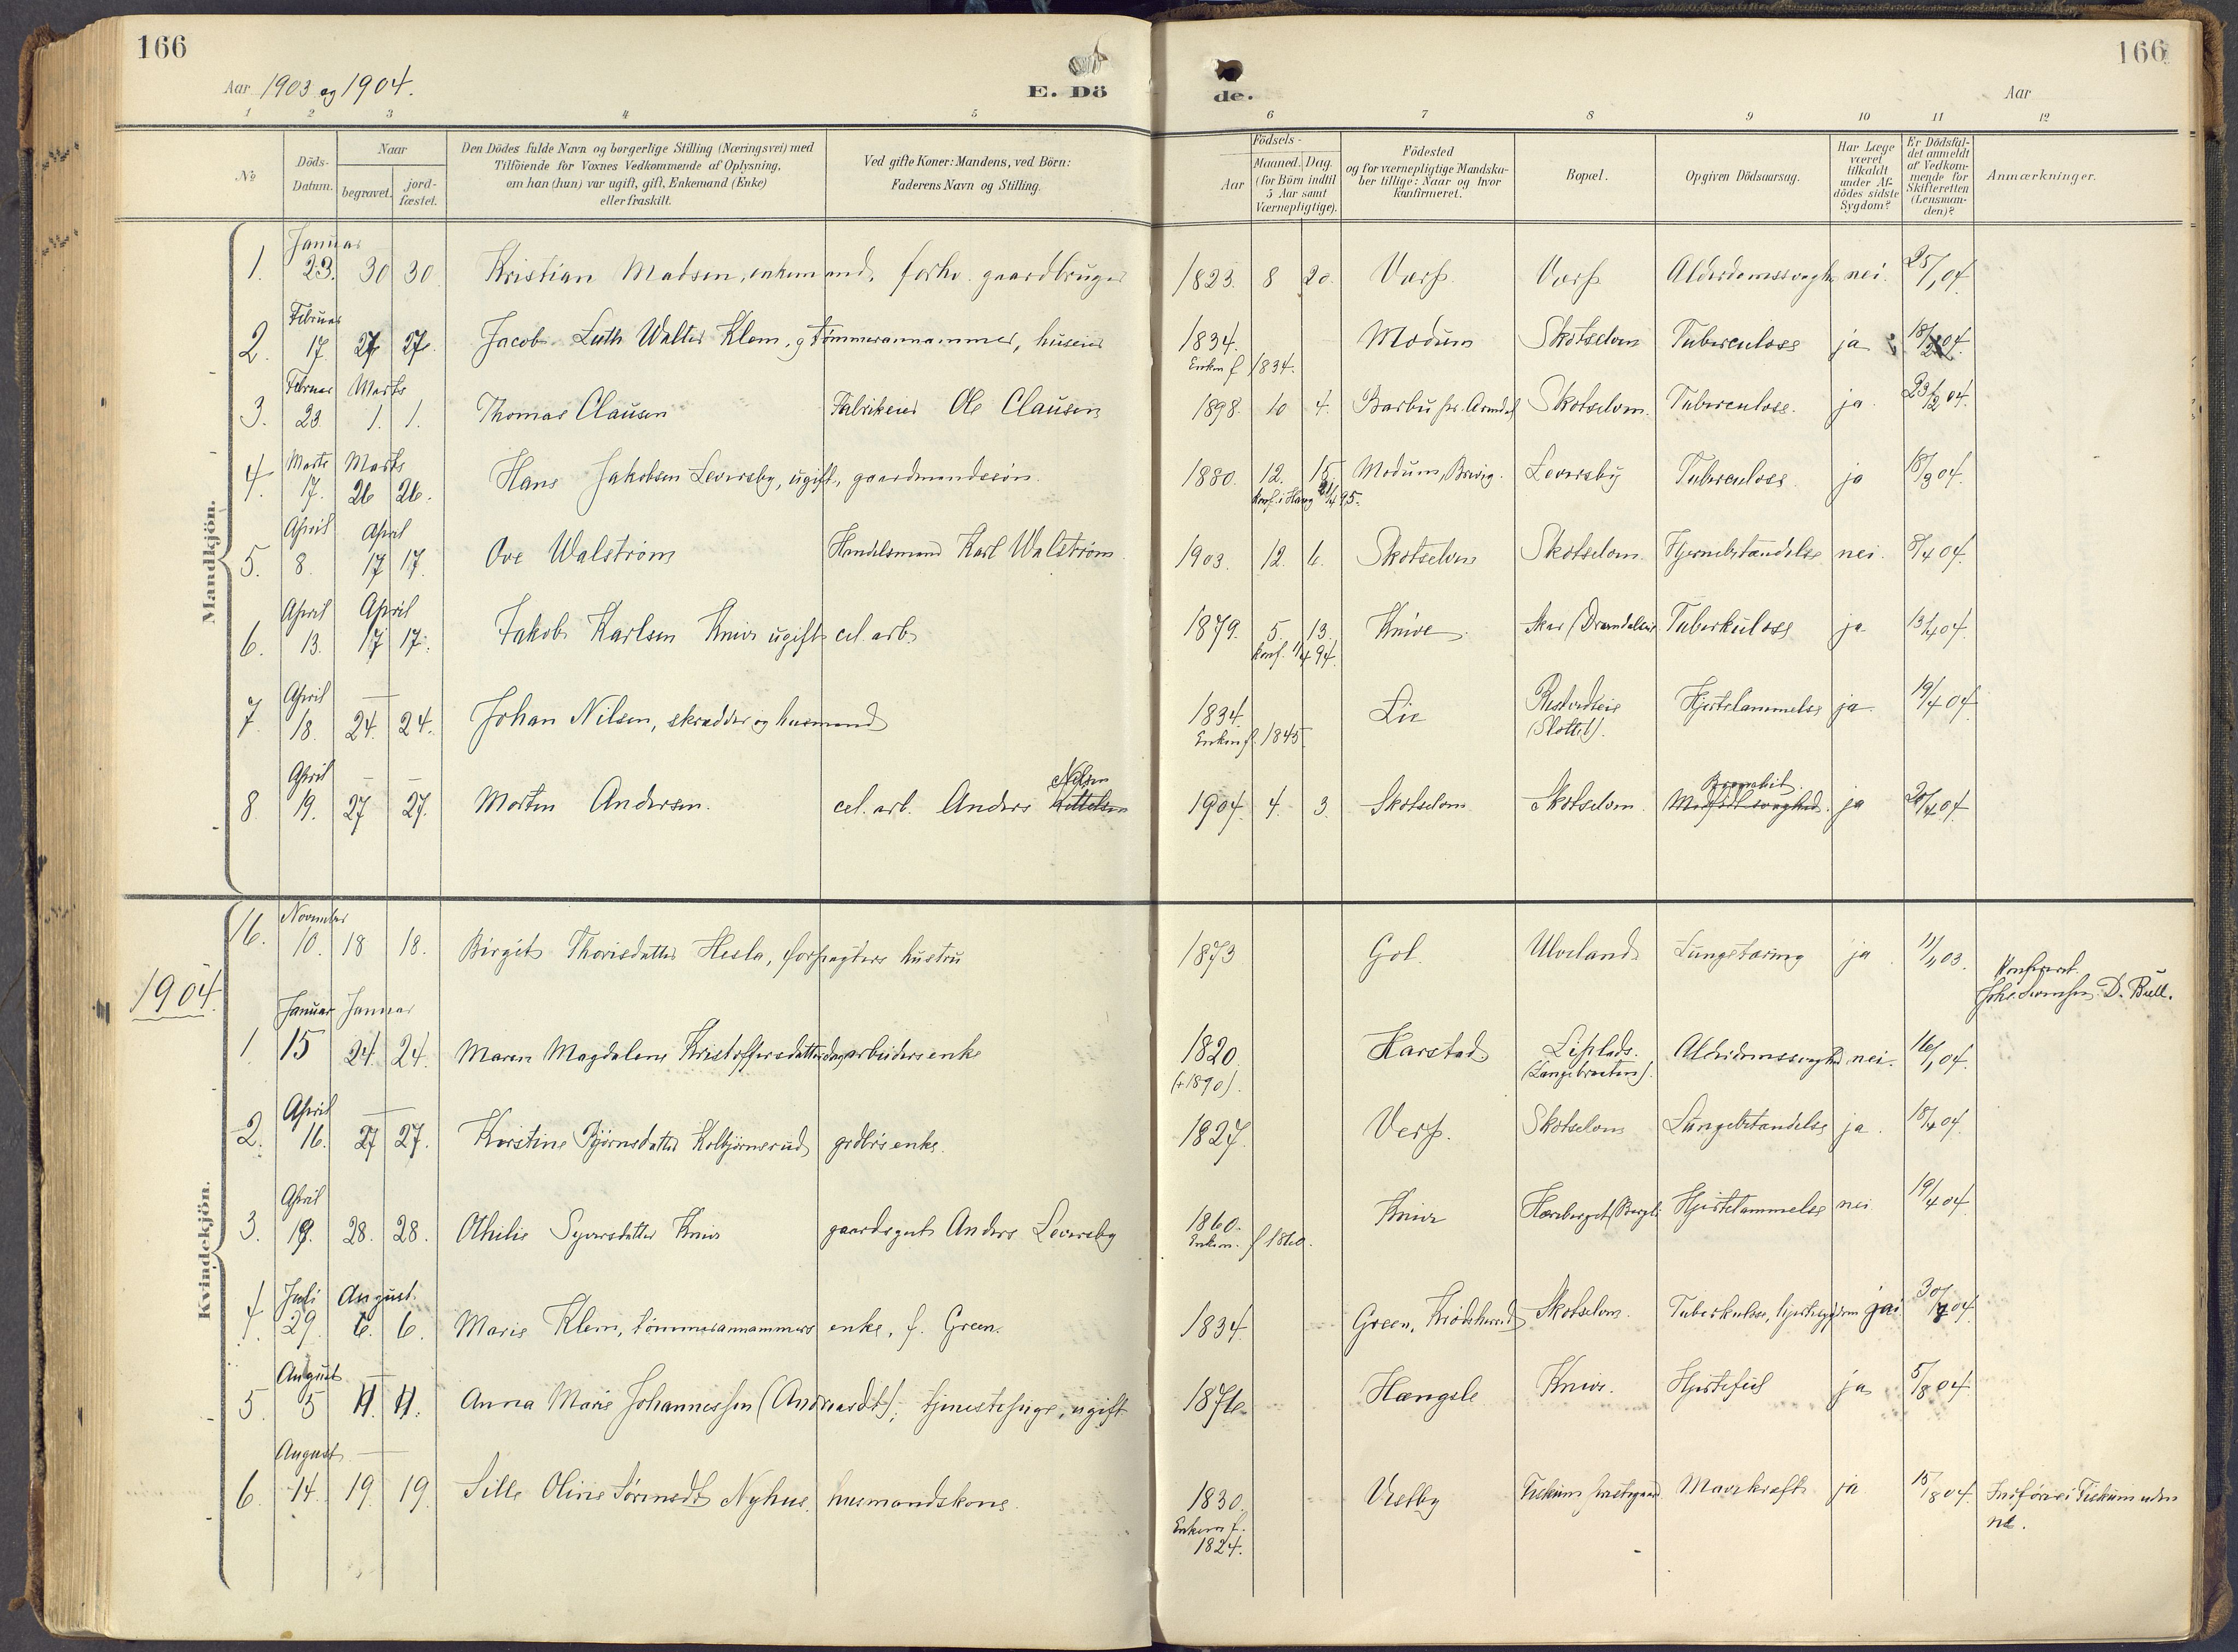 166
166
Aar 1903 og 1904.
E. Dö
de.
Aar
1 2 3 4 5 6 7 8 9 10 11 12
№
Döds-Datum.
Naar
begravet.
jord-fæstet.
Den Dödes fulde Navn og borgerlige Stilling (Næringsvei) med
Tilföiende for Voxnes Vedkommende af Oplysning,
om han (hun) var ugift, gift, Enkemand (Enke)
eller fraskilt.
Ved gifte Koner: Mandens, ved Börn:
Faderens Navn og Stilling.
Födsels-
Aar
Maaned. Dag.
(for Börn indtil
5 Aar samt
Værnepligtige).
Födested
og for værnepligtige Mandska-
ber tillige: Naar og hvor
konfirmeret.
Bopæl.
Opgiven Dödsaarsag.
Har Læge
været
tilkaldt
under Af-
dödes sidste
Sygdom?
Er Dödsfal-
det anmeldt
af Vedkom-
mende for
Skifteretten
(Lensman-
den)?
Anmærkninger.
Mandkjön.
Januar
1. 23. 30 30 Kristian Madsen, enkemand, forhv. gaardbruger 1823. 8 20. nei. 25/1 04
Februar
2. 17 27 27. Jacob Luth Walter Klem, g tømmerannammer, huseier 1834. Modum Skotselven Tuberculose ja 18/2 04.
Enken f. 1834.
Februar Marts
3. 23 1. 1. Thomas Clausen Fabrikeier Ole Clausen 1898. 10 4. Barbu pr. Arendal Skotselven. Tuberculose. ja 23/2 04.
Marts Marts
4. 17. 26 26. Hans Jakobsen Leversby, ugift, gaardmandssøn. 1880. 12. 15 Modum, Leversby Tuberculose. ja 18/3 04.
konf. i Haug 95.
April April
5. 8. 17 17. Ove Walstrøm Handelsmand Karl Walstrøm 1903. 12. 6. Skotselven Skotselven Hjernebetændelse nei. 8/4 04.
April April
6. 13. 17 17. Jakob Karlsen Knive ugift cel. arb. 1879. 5. 13. Knive Tuberkulose ja 13/4 04.
konf. 94.
April —
7. 18. 24. 24. Johan Nilsen, skrædder og husmand 1834. Lie Hjertelammelse ja 19/4 04
Enken f. 1845
April — —
8 19. 27 27. Morten Andersen. cel. arb. Anders Nilsen 1904. 4. 3. Skotselven Skotselven. ja 20/4 04.
Kvindekjön.
November
16. 10. 18 18. Birgit Thorisdatter Hesla, forpagters hustru 1873 Gol. Ulveland Lungetæring ja 11/11 03.
D. Bull.
1904.
Januar Januar
1 15 24. 24. Maren Magdalene Kristoffersdatter dagarbeiders enke 1820. Harstad Alderdomssvaghed nei. 16/1 04.
(+1890). (Langebraaten).
April —
2. 16. 27 27. Kirstine Bjørnsdatter Kolbjørnsrud grdbr's enke. 1827. Skotselven Lungebetændelse ja. 18/4 04.
April
3. 19. 28. 28. Othilie Syversdatter Knive gaardsgut Anders Leversby 1860. Knive Hjertelammelse nei 19/4 04
Enkem. f. 1860.
Juli August.
4. 29. 6. 6. Marie Klem, tømmerannammers enke, f. Green. 1834 Green, Krødsherred Skotselven. Tuberkulose, hjertesygdom ja 30/7 04
August —
5. 5 11. 11. Anna Marie Johannessen (Andreasdt), tjenestepige, ugift 1876. Hængsle Knive. Hjertefeil ja 5/8 04
August —
6. 14. 19. 19. Sille Oline Nyhus, husmandskone. 1830. Vestby Fiskum Mavekræft ja 15/8 04. Indføres i Fiskum uden
Enkem f. 1824. no.